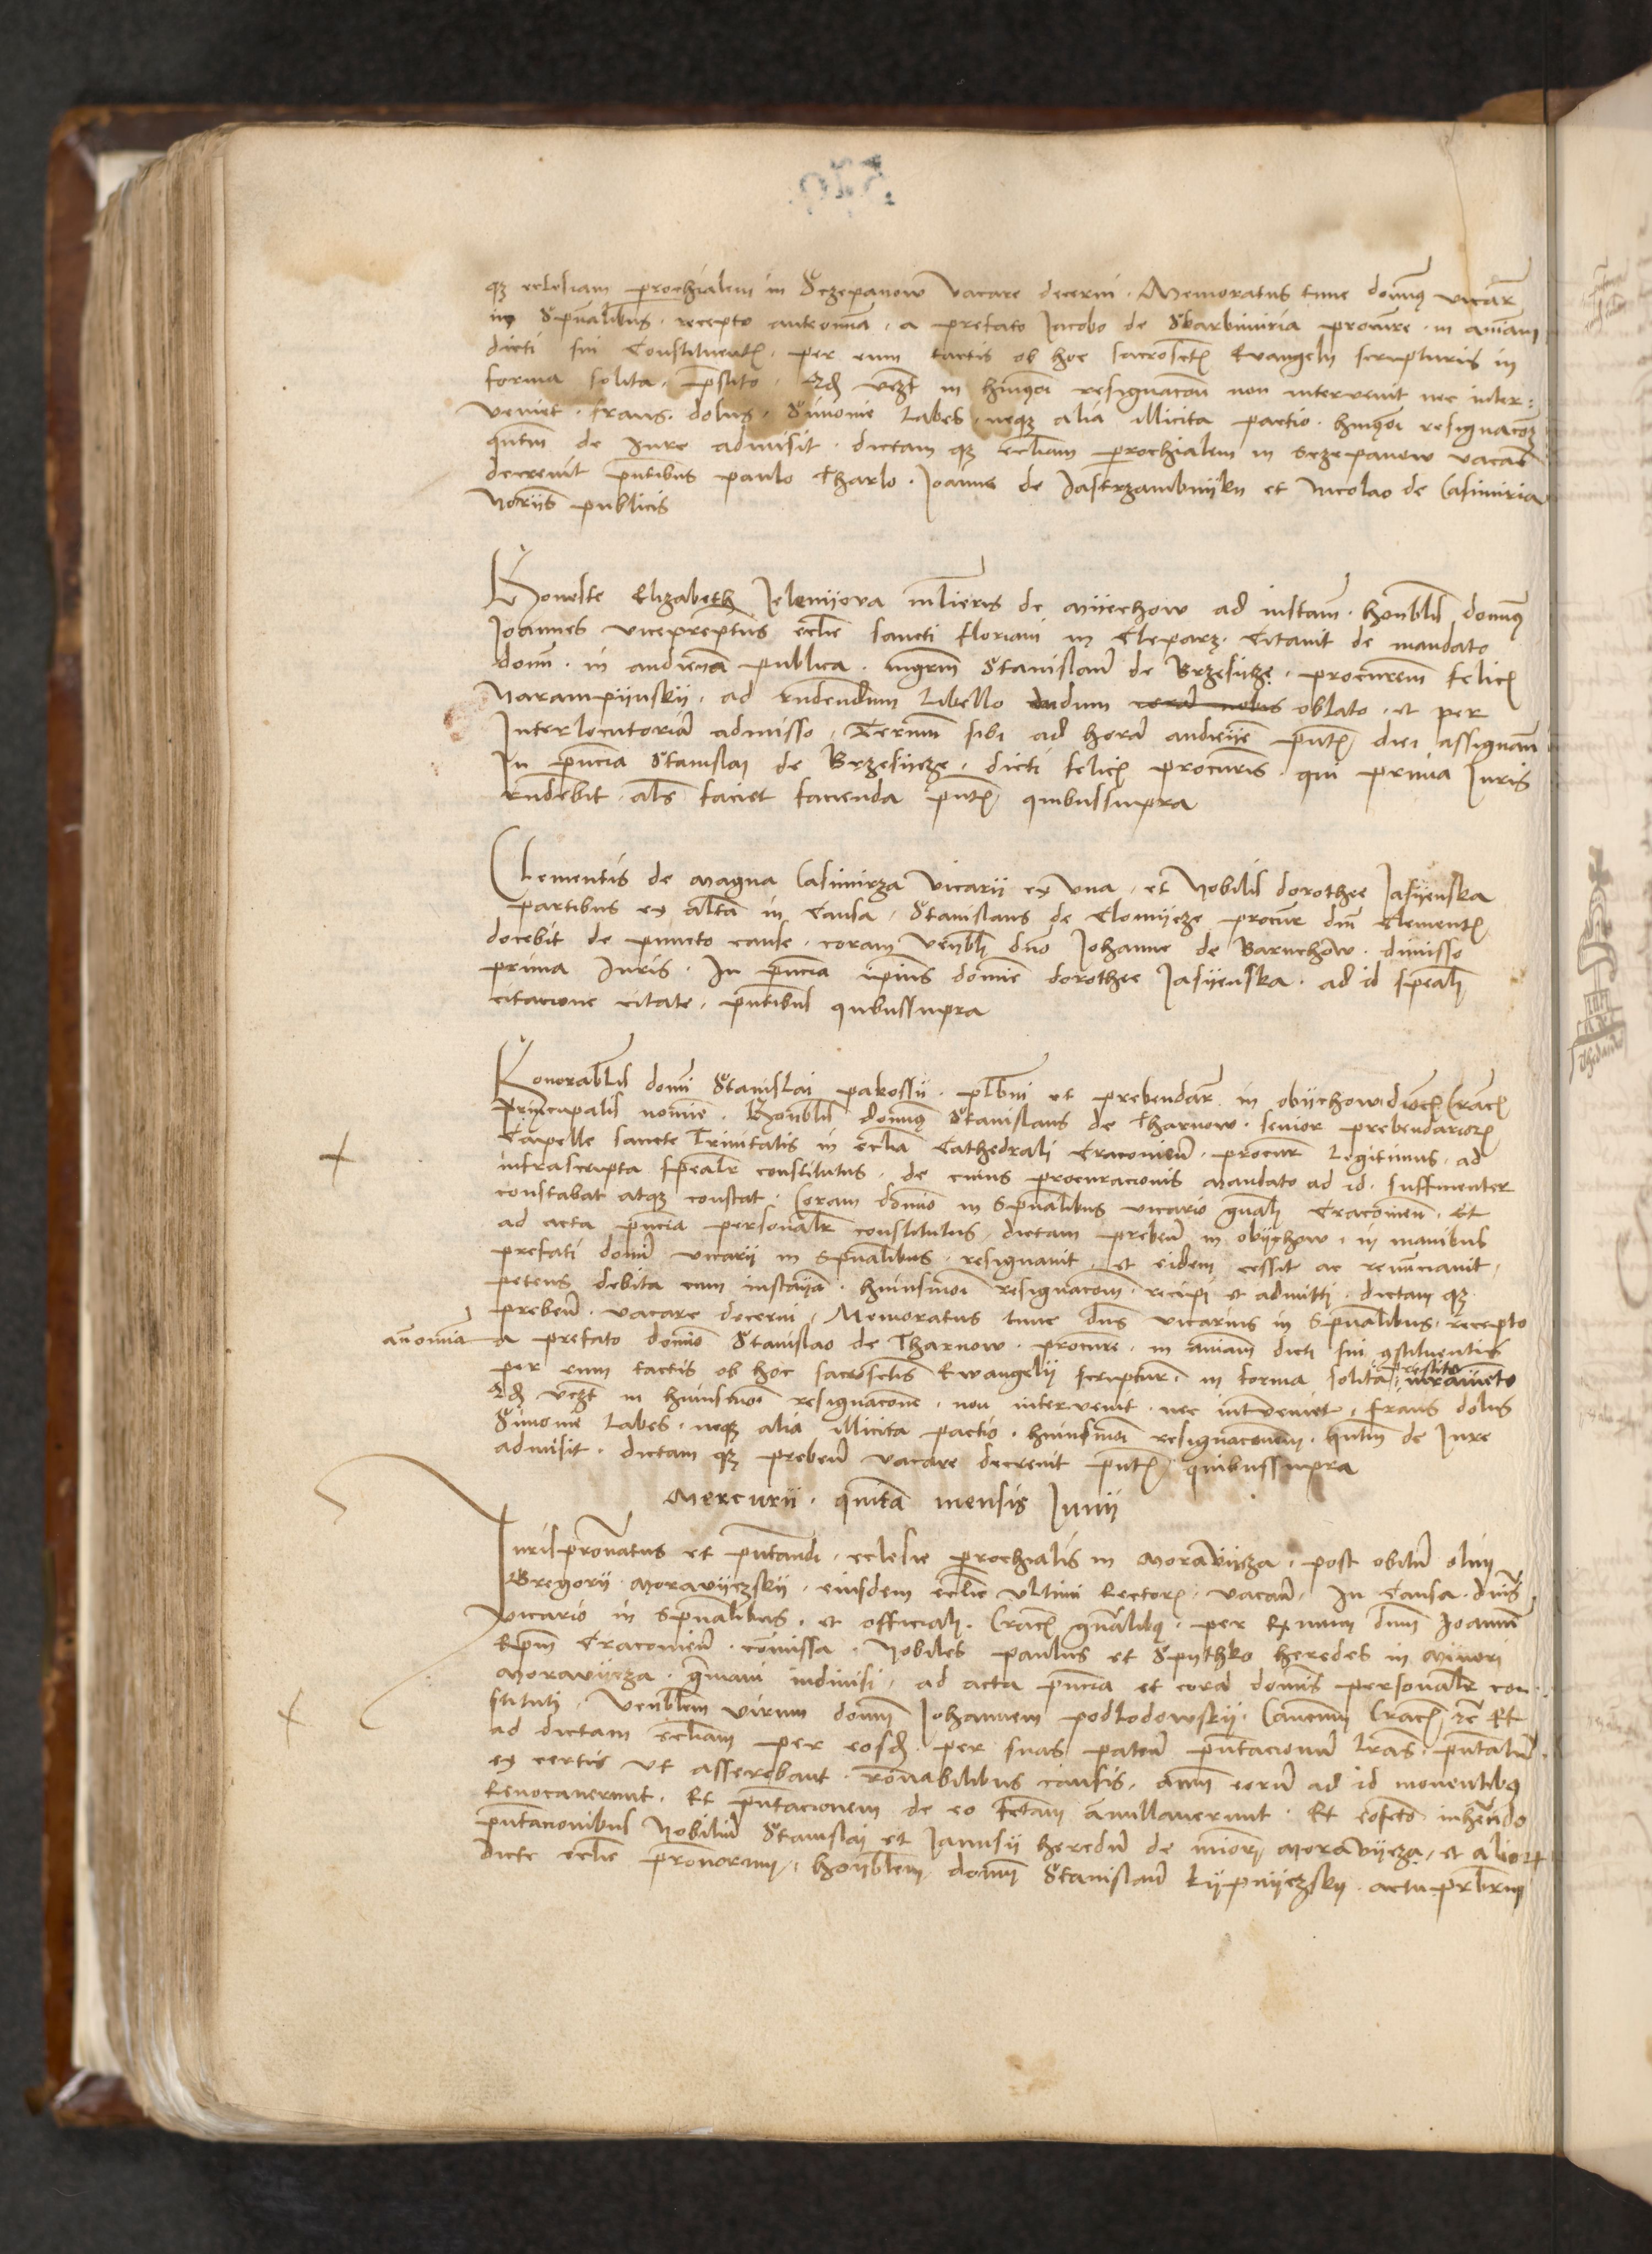 qz ecclesiam parochialem in Sczepanow vacare decerni. Memoratus tunc domnus vicar
in Spualibus. recepto a prefato Jacobo de Skarbimiria procure. in aniam
dicti sui Constituentz. per eum tactis ob hoc sacrosctz Evangely scripturis in
forma solita. prestito. Qd vczt in hmoi resignacoe non intervenit nec inter:
veniet. fraus. dolus. Simonie Labes. neqz alia illicita pactio. hmoi resignacoz
qntm de Jure admisit. dictam qz eccliam parochialem in Sczepanow vacare
decrevit pntibus paulo Charlo. Joanne de Jastrzambnyky et Nicolao de Casimiria
Notariis publicis
Honeste Elizabeth Jelenyova mlieris de Myechow ad instam. honblis domnus
Joannes viceprepositus ecclie sancti floriani in Cleparz. Citavit de mandato
domni. in audiencia publica. mgrm Stanislaum de Brzesicze. procurem felicz
Narampynsky. ad rndendum Libello dudum coram nobis oblato. et per
Interlocutoriam admisso. Termm sibi ad horam audiencie pntz diei assignam
In pncia Stanislai de Brzesycze. dicti felicz procuris. qui prima Juris
rndebit. als faciet facienda pntz quibussupra
Clementis de Magna Casimirza Vicarii ex vna. et Nobilis dorothee Jasyenska
partibus ex altera in Causa. Stanislaus de Clomycze procur dni Clementz
docebit de puncto cause. coram venbli dno Johanne de Baruchow. dimisso
prima Juris. In pncia ipius domine dorothee Jasyenska. ad id speali
citacione citate. pntibus quibussupra
Honorablis domni Stanislai pakossii. plbni et prebendar in obychow diocz Cracz
principalis nomine. Honblis domnus Stanislaus de Tharnow. senior prebendariorz
Capelle sancte Trinitatis in ecclia Cathedrali Cracoviem. procur Legitimus. ad
infrascripta spealr constitutus. de cuius procuracionis mandato ad id. sufficienter
constabat atqz constat. Coram domino in Spualibus vicario gnali Cracoviem. et
ad acta pncia personalr constitutus dictam prebem in obychow. in manibus
prefati domni vicarii in spualibus. resignavit. et eidem cessit ac renunciavit.
petens debita cum instancia. huiusmoi resignacom. recipi et admitti. dictam qz
prebem. vacare decerni. Memoratus tunc dns vicarius in spualibus. recepto
a prefato domino Stanislao de Tharnow. procure. in aniam dicti sui constituentis
per eum tactis ob hoc sacrosctis Ewangely scriptur. in forma solita. prestito iuramento
Qd vczt in huiusmoi resignacone. non intervenit. nec interveniet. fraus dolus
Simonie Labes. neqz alia illicita pactio. huiusmoi resignaconem. qntm de Jure
admisit. dictam qz prebem vacare decrevit pntz quibussupra
Mercurii. quinta mensis Junii
Jurispronatus et pntandi. ecclesie parochialis in Moravycza. post obitum olim
Gregorii Moravyczsky. eiusdem ecclie vltimi Rectorz. vacan. In Causa. dnis
vicario in spualibus. et officiali. Cracz gnalibus. per Rmum dnm Joannem
Epm Cracoviem. comissa. Nobiles paulus et Spythko heredes in Minori
Moravycza. germani indivisi. ad acta pncia et coram domnis personalr con
stituti. Venblem virum domnm Johannem podlodowsky. Canonm Cracz etc Et
ad dictam eccliam per eosd. per suas patem pntacionum lras. pntatum
ex certis vt asserebant. ronabilibus causis. anm eorum ad id moventibus
Revocaverunt. Et pntacionem de eo fctam anullaverunt. Et inherendo
pntacionibus Nobilium Stanislai et Janusy heredum de minori Moravycza. et aliorum
dicte ecclie pronorum. honblem domnm Stanislaum Lypnyczsky. actu prbrm